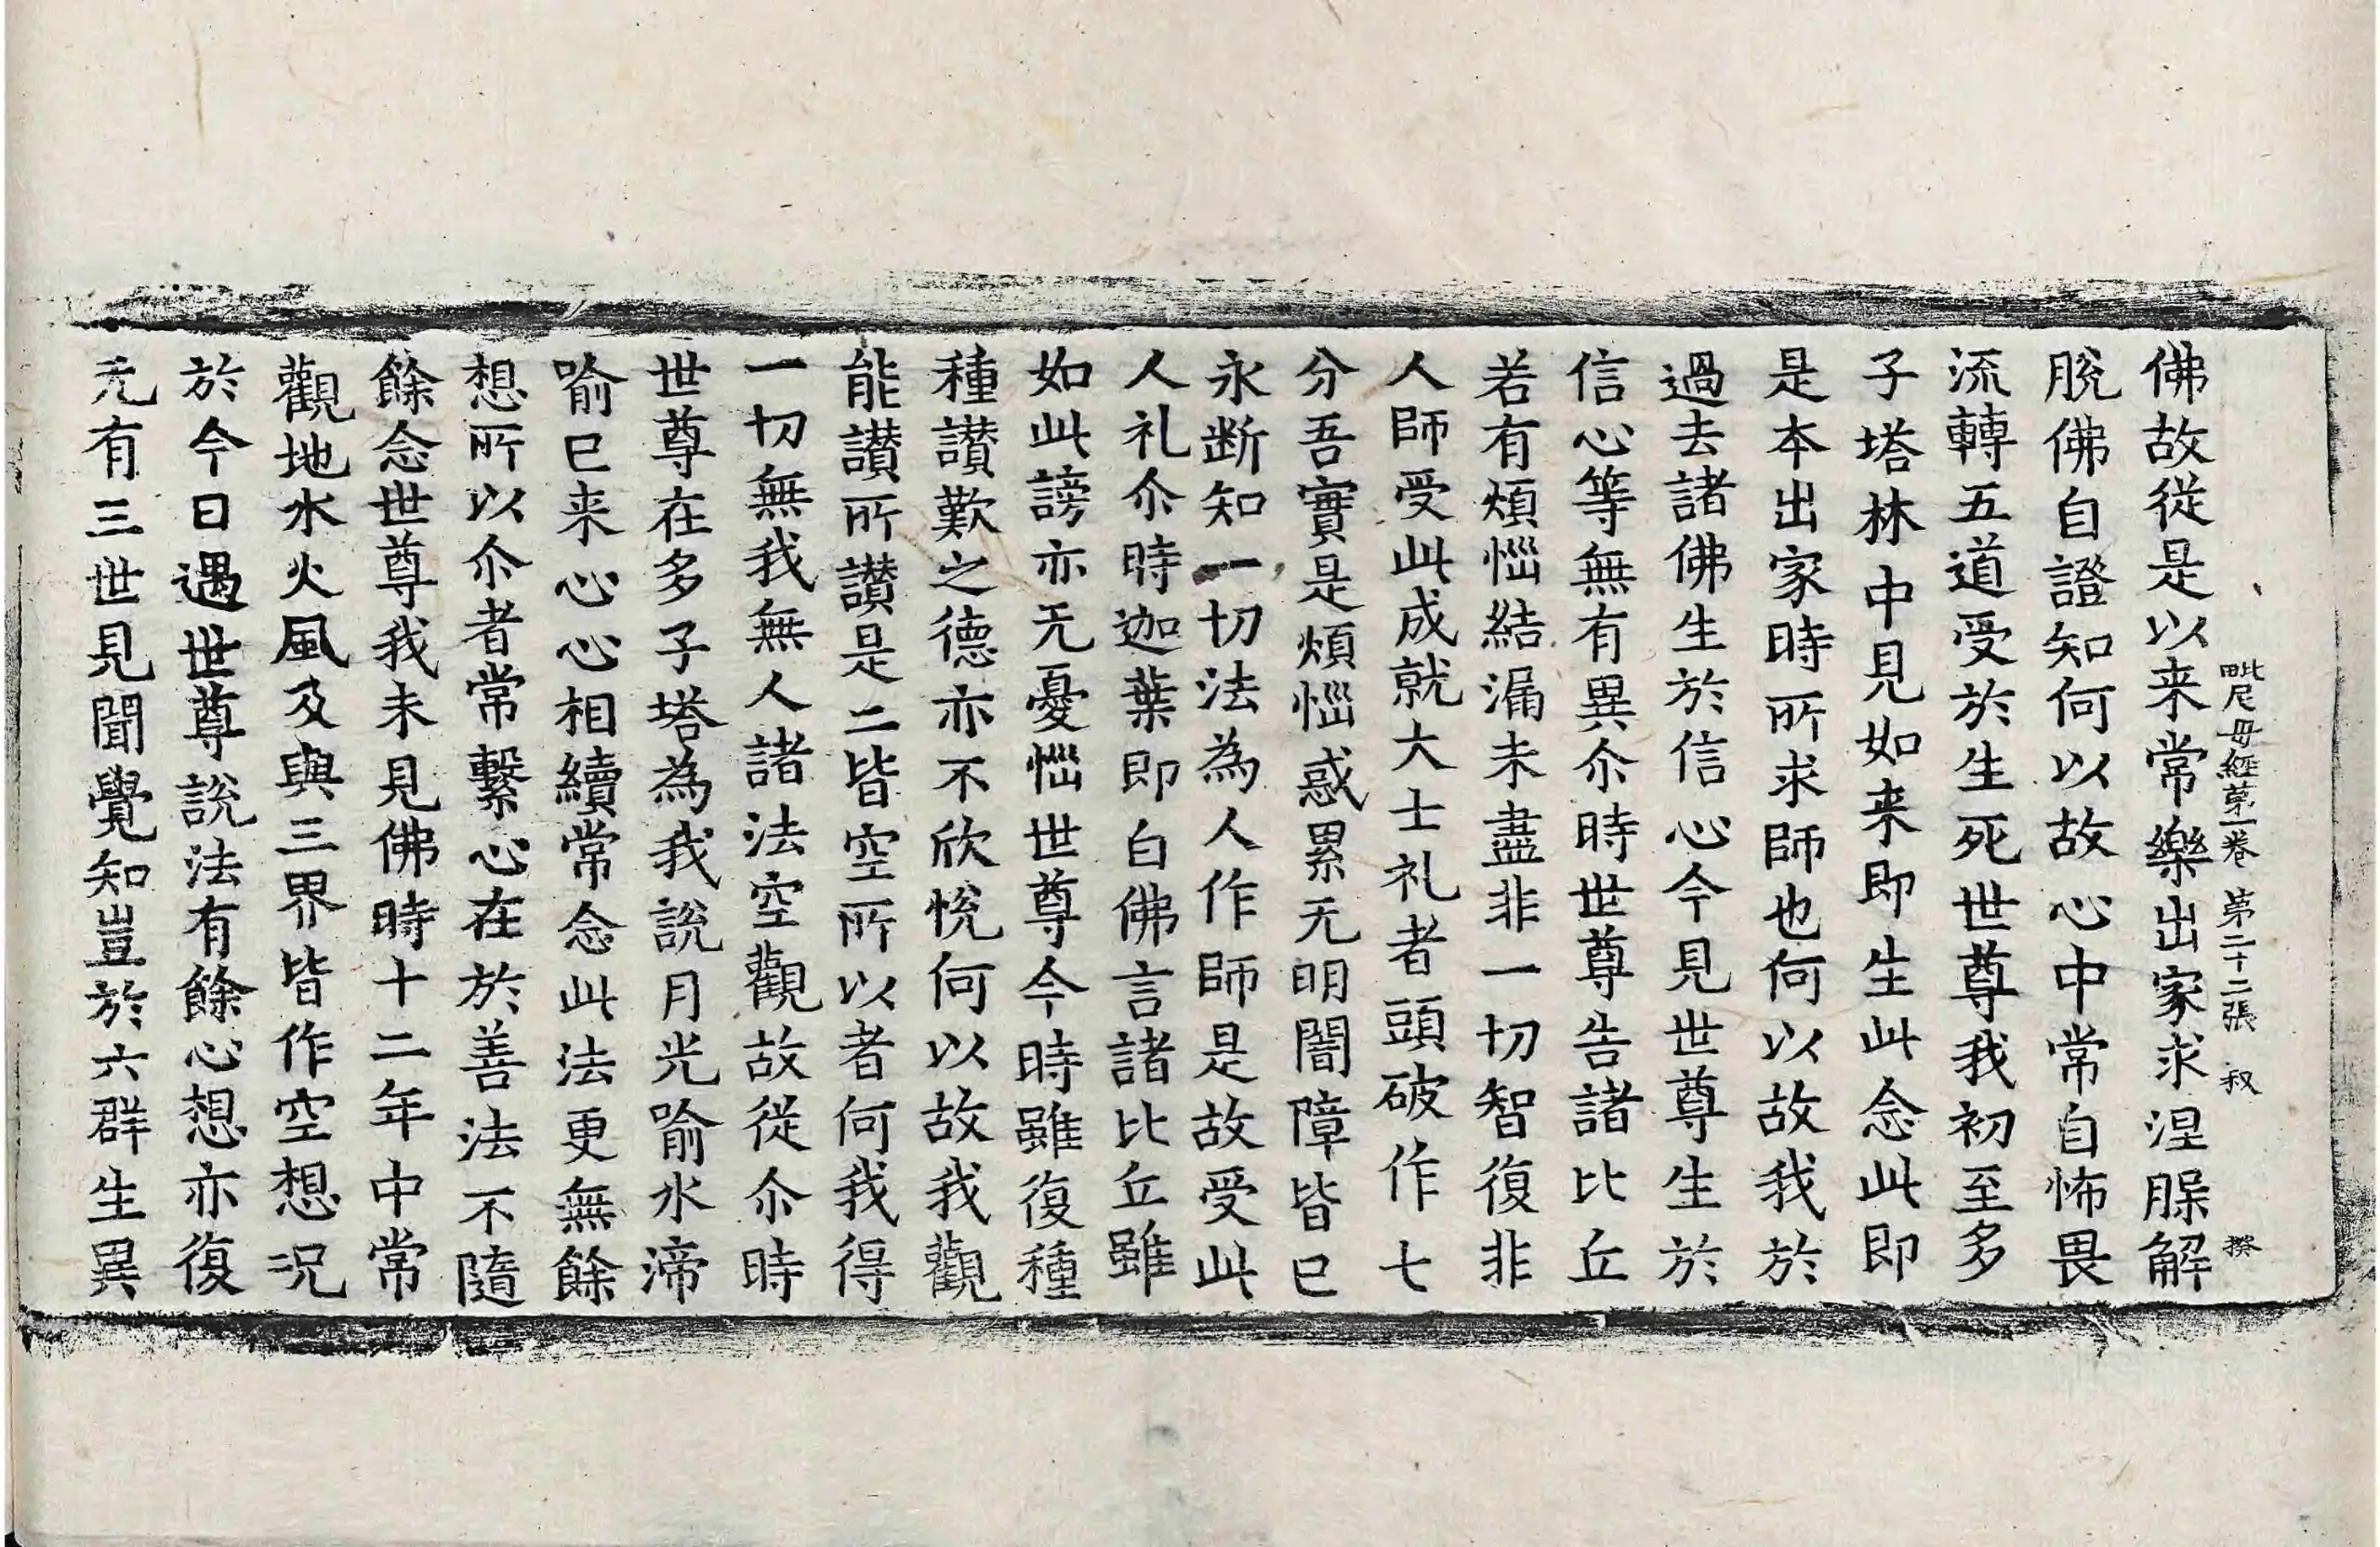 毗尼毋經苐一卷 苐二十二張 叔 揆
佛故從是以来常樂出家求涅脲解
脫佛自證知何以故心中常自怖畏
流轉五道受於生死世尊我初至多
子塔林中見如来即生此念此即
是本出家時所求師也何以故我於
過去諸佛生於信心今見世尊生於
信心等無有異尒時世尊告諸比丘
若有煩惱結漏未盡非一切智復非
人師受此成就大士礼者頭破作七
分吾實是煩惱惑累无明闇障皆已
永断知一切法為人作師是故受此
人礼尒時迦葉即白佛言諸比丘雖
如此謗亦无憂惱世尊今時雖復種
種讃歎之德亦不欣悅何以故我觀
能讃所讃是二皆空所以者何我得
一切無我無人諸法空觀故從尒時
世尊在多子塔為我說月光喻水渧
喻已来心心相續常念此法更無餘
想所以尒者常繫心在於善法不隨
餘念世尊我未見佛時十二年中常
觀地水火風及與三界皆作空想况
於今日遇世尊說法有餘心想亦復
无有三世見聞覺知豈於六群生異